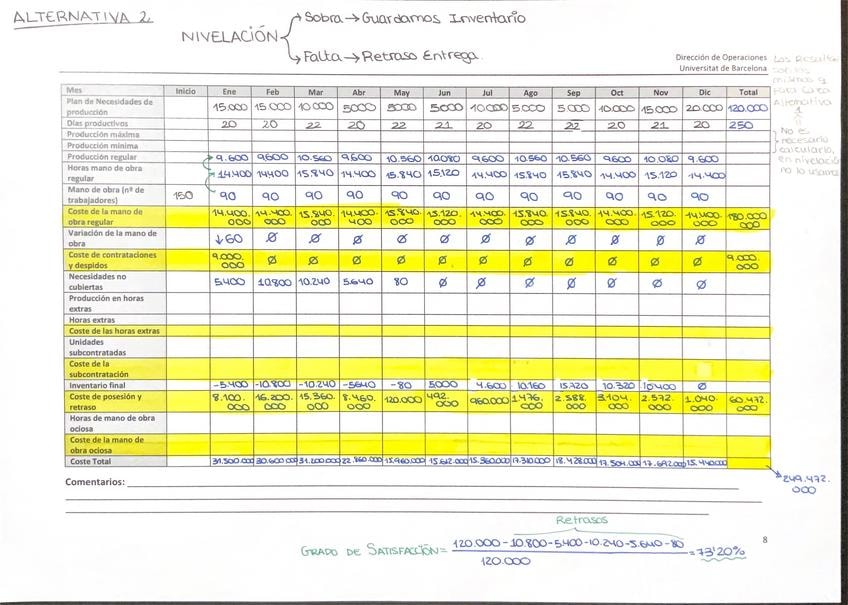 ALTERNATIVA 2.
NIVELACIÓN
Sobra → Guardamos Inventario
Falta → Retraso Entrega.
Dirección de Operaciones
Universitat de Barcelona
Mes Inicio Ene Feb Mar Abr May Jun Jul Ago Sep Oct Nov Dic Total
Plan de Necesidades de producción 15.000 15.000 10.000 5000 5000 5000 10.000 5000 5.000 10.000 15.000 20.000 120.000
Días productivos 20 20 22 20 22 21 20 22 22 20 21 20 250
Producción máxima
Producción mínima
Producción regular 9.600 9600 10.560 9.600 10.560 10.080 9.600 10.560 10.560 9600 10.080 9.600
Horas mano de obra regular 14.400 14400 15.840 14.400 15.840 15.120 14.400 15.840 15.840 14.400 15.120 14.400
Mano de obra (nº de trabajadores) 150 90 90 90 90 90 90 90 90 90 90 90 90
Coste de la mano de obra regular 14.400.000 14.400.000 15.840.000 14.400.400 15.840.000 15.120.000 14.400.000 15.840.000 15.840.000 14.400.000 15.120.000 14.400.000 180.000.000
Variación de la mano de obra ↓60 Ø Ø Ø Ø Ø Ø Ø Ø Ø Ø Ø
Coste de contrataciones y despidos 9.000.000 Ø Ø Ø Ø Ø Ø Ø Ø Ø Ø Ø 9.000.000
Necesidades no cubiertas 5.400 10.800 10.240 5.640 80 Ø Ø Ø Ø Ø Ø Ø
Producción en horas extras
Horas extras
Coste de las horas extras
Unidades subcontratadas
Coste de la subcontratación
Inventario final -5.400 -10.800 -10.240 -5640 -80 5.000 4.600 10.160 15.720 10.320 10400 Ø
Coste de posesión y retraso 8.100.000 16.200.000 15.360.000 8.460.000 120.000 492.000 960.000 1.476.000 2.588.000 3.104.000 2.572.000 1.040.000 60.472.000
Horas de mano de obra ociosa
Coste de la mano de obra ociosa
Coste Total 31.500.000 30.600.000 31.200.000 22.860.000 15.960.000 15.612.000 15.360.000 17.310.000 18.428.000 17.504.000 17.692.000 15.440.000
249.472.000
Los Result
son los
mismos q
para la
Alternativa
1
No es
necesario
calcularlo,
en nivelación
no lo usamos
Comentarios:
Retrasos
GRADO DE SATISFACCIÓN = 120.000 - 10.800 - 5.400 - 10.240 - 5.640 - 80 = 73'20%
120.000
8